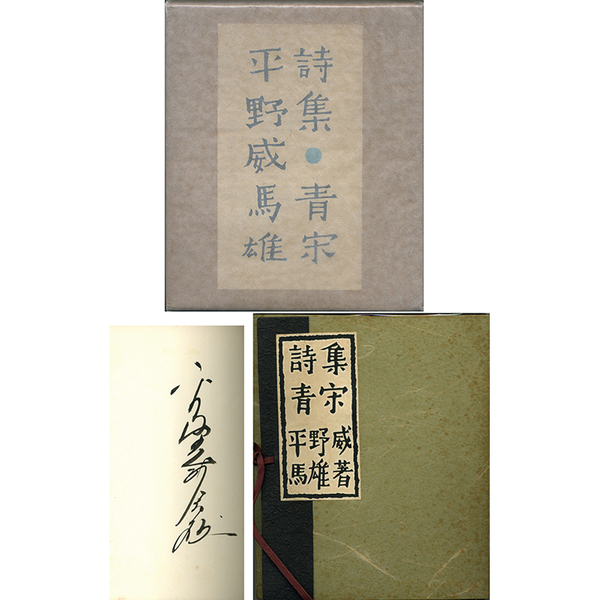 詩集●青宋
平野威馬雄
詩集
青宋
平野威
馬雄著